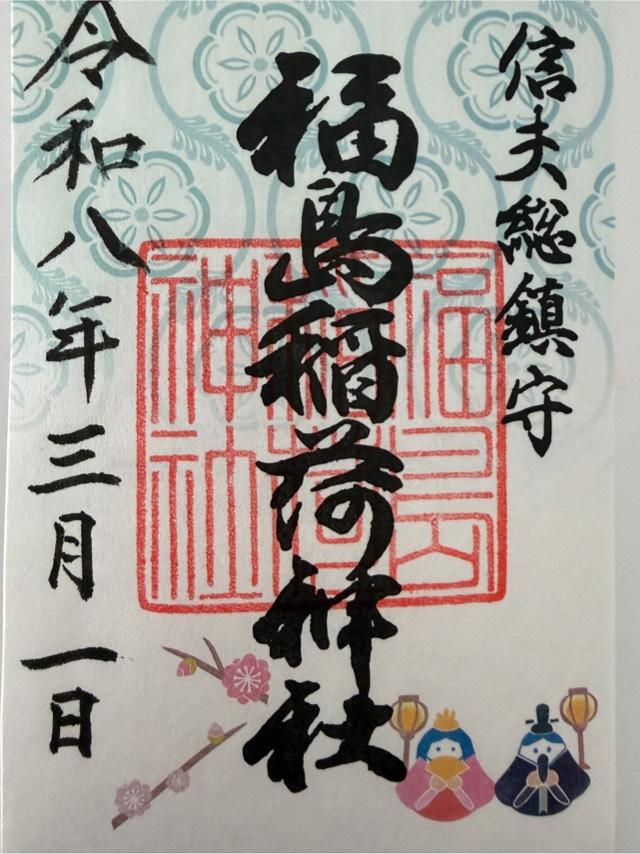 信夫総鎮守
福島稲荷神社
福島稲荷神社
令和八年三月一日